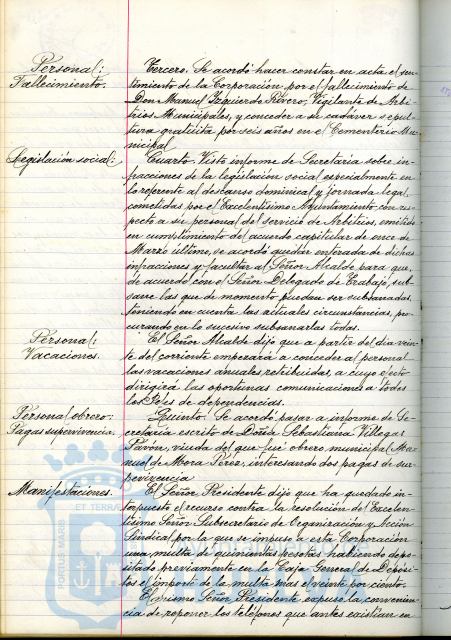 Personal:
Fallecimiento.
Tercero. Se acordó hacer constar en acta el sen-
timiento de la Corporación por el fallecimiento de
Don Manuel Izquierdo Rivero, Vigilante de Arbi-
trios Municipales, y conceder a su cadáver sepul-
tura gratuita por seis años en el Cementerio Mu-
nicipal
Legislación social:
Cuarto. Visto informe de Secretaría sobre in-
fracciones de la legislación social especialmente en
lo referente al descanso dominical y jornada legal,
cometidas por el Excelentísimo Ayuntamiento con res-
pecto a su personal del servicio de Arbitrios, emitido
en cumplimiento de acuerdo capitular de once de
Marzo último, se acordó quedar enterada de dichas
infracciones y facultar al Señor Alcalde para que,
de acuerdo con el Señor Delegado de Trabajo, sub-
sane las que de momento puedan ser subsanadas,
teniendo en cuenta las actuales circunstancias, pro-
curando en lo sucesivo subsanarlas todas.
Personal:
Vacaciones.
El Señor Alcalde dijo que a partir del día vein-
te del corriente empezará a conceder al personal
las vacaciones anuales retribuidas, a cuyo efecto
dirigirá las oportunas comunicaciones a todos
los Jefes de dependencias.
Personal obrero:
Pagas supervivencia.
Quinto. Se acordó pasar a informe de Se-
cretaría escrito de Doña Sebastiana Villegas
Pavón, viuda del que fué obrero municipal Ma-
nuel de Mora Pérez, interesando dos pagas de su-
pervivencia
Manifestaciones.
El Señor Presidente dijo que ha quedado in-
terpuesto el recurso contra la resolución del Excelen-
tísimo Señor Subsecretario de Organización y Acción
Sindical por la que se impuso a esta Corporación
una multa de quinientas pesetas, habiendo depo-
sitado previamente en la Caja General de Depósi-
tos el importe de la multa más el veinte por ciento.
El mismo Señor Presidente expuso la convenien-
cia de reponer los teléfonos que antes existían en
ET TERRA
PORTUS MARIS